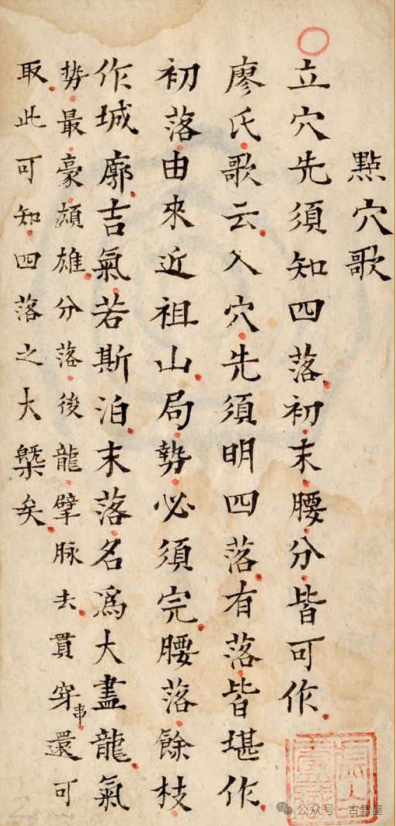 點穴歌
立穴先須知四落初末腰分皆可作
廖氏歌云入穴先須明四落有落皆堪作
初落由來近祖山局勢必須完腰落餘枝
作城廓吉氣若斯泊末落名爲大盡龍氣
勢最豪雄分落後龍擘脉去貫穿串還可
取此可知四落之大槩矣
公众号